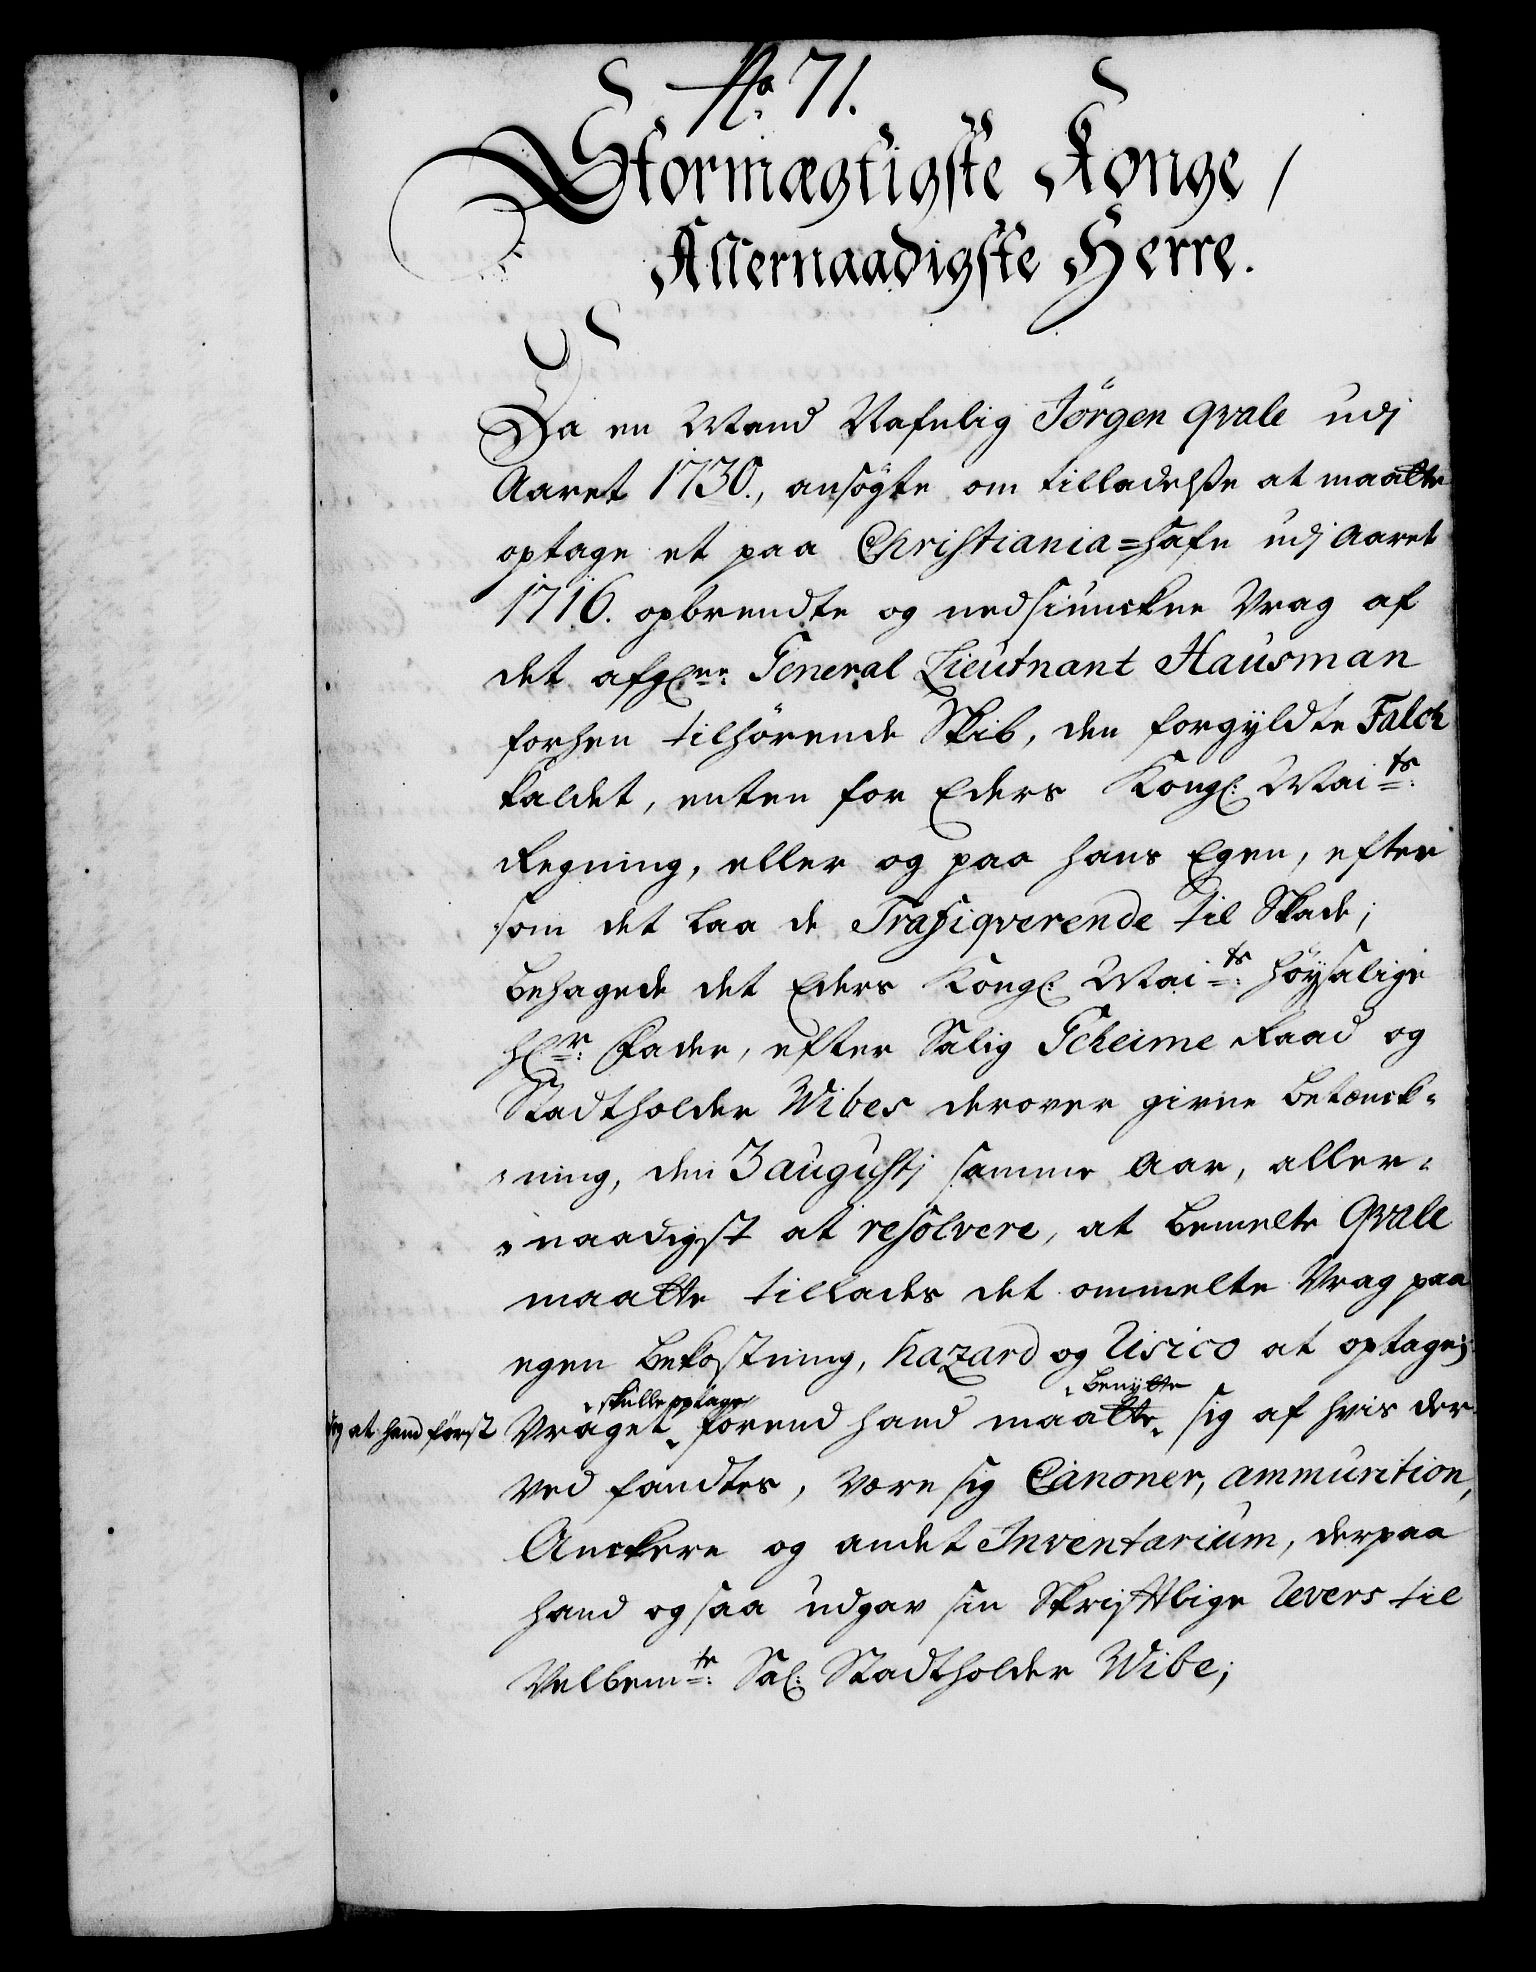 No. 71.
Stormægtigste Konge /
Allernaadigste Herre.
Da en Mand Nafnlig Jörgen Qvale udj
Aaret 1730., ansögte om tilladelsse at maatte
optage et paa Christiania=Hafn udj Aaret
1716. opbrendte og nedsiunckne Vrag af
det afg: General Lieutnant Hausman
forhen tilhörende Skib, den forgyldte Falck
kaldet, enten for Eders Kongl: Maits:
Regning, eller og paa hans Egen, efter
som det laa de Trafiqverende til Skade;
behagede det Eders Kongl: Maits: höysalige
Hr: Fader, efter Salig Geheime Raad og
Stadtholder Wibes derover givne betænck-
-ning, den 3 augustj samme Aar, aller-
-naadigst at resolvere, at bemelte Qvale
maatte tillades det ommelte Vrag paa
egen bekostning, hazard og Risico at optage;
og at hand först
skulle optage
benytte
Vraget, forend hand maatte, sig af hvis der-
ved fandtes, være sig Canoner, ammunition,
Anckere og andet Inventarium, derpaa
hand ogsaa udgav sin Skrifftlige Revers til
Velbemte: Sal: Stadtholder Wibe;